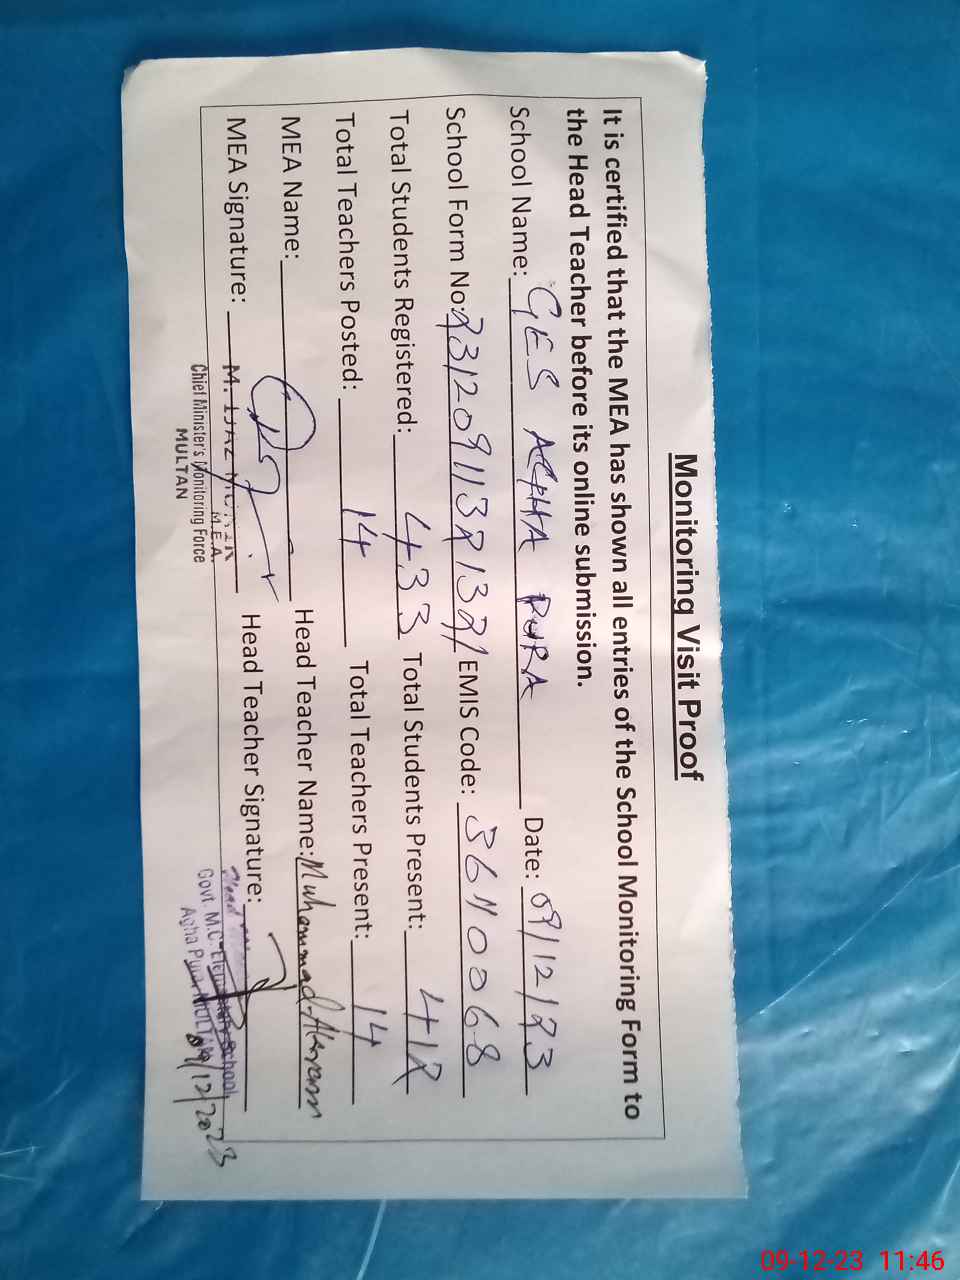 Monitoring Visit Proof
It is certified that the MEA has shown all entries of the School Monitoring Form to
the Head Teacher before its online submission.
School Name: GES AGHA PURA Date: 09/12/23
School Form No: EMIS Code: 36110068
Total Students Registered: 433 Total Students Present: 412
Total Teachers Posted: 14 Total Teachers Present: 14
MEA Name: Head Teacher Name: Muhammad Akram
MEA Signature: Head Teacher Signature:
M.
M.E.A.
Chief Minister's Monitoring Force
MULTAN
Head
Govt. M.C. Elementary School
Agha Pura MULTAN
09/12/2023
09-12-23 11:46